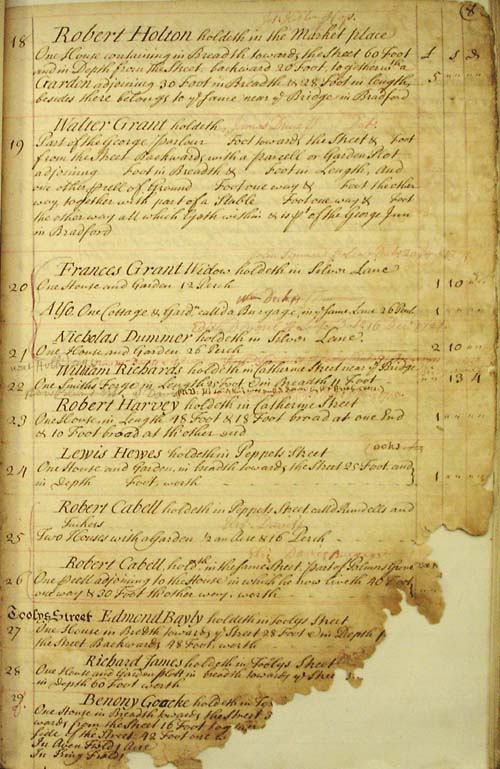 8
18 Robert Holton holdeth in the Market place
£ s d
One House containing in Breadth towards the Street 60 Foot
and in Depth from the Street backward 20 Foot, together with a
Garden adjoining 30 Foot in Breadth & 28 Foot in Length, 5 " "
besides there belongs to ye same near ye Bridge in Bradford
Walter Grant holdeth
19 Part of the George parlour Foot towards the Street & Foot
from the Street Backwards, with a parcell or Garden Plot
adjoining Foot in Breadth & Foot in Length, And
one other Prcell of Ground Foot one way & Foot the other
way together with part of a Stable Foot one way & Foot
the other way all which lyeth within & is pt of the George Inn
in Bradford
Frances Grant Widow holdeth in Silver Lane
20 One House and Garden 12 Perch 1 10 "
Also One Cottage & Gardn called a Burgage, in ye same Lane 26 Perch 1 " "
Nicholas Dummer holdeth in Silver Lane
21 One House and Garden 26 Perch 2 10 "
William Richards holdeth in Catherine Street near ye Bridge
22 One Smiths Forge in Length 25 Foot & in Breadth 11 Foot " 13 4
Robert Harvey holdeth in Catherine Street
23 One House, in Length 48 Foot & 18 Foot broad at one End 1 " "
& 10 Foot broad at th'other End
Lewis Hewes holdeth in Peppets Street
24 One House and Garden, in breadth towards the Street 25 Foot, and
in Depth Foot, worth 1 " "
Robert Cabell holdeth in Peppets Street called Rundells and
Tuckers
25 Two Houses with a Garden 1/2 an Acre & 16 Perch
Robert Cabell, holdth in the same Street, part of
26 One Prcell adjoining to the House in which he now liveth 40 Foot
one way & 30 Foot th'other way, worth
Toolys Street Edmond Bayly holdeth in Toolys Street
27 One House in Bredth towards ye Street 28 Foot & in Depth f
the Street Backwards 48 Foot, worth
Richard James holdeth in Toolys Street
28 One House and Garden plott in breadth towards ye Stree
in Depth 60 Foot worth
29 Benony Goacke holdeth in Too
One House in Breadth towards the Street 3
wards from the Street 16 Foot together
side of the Street 42 Foot one
In Aven Field 1 Acre
In Pring Field